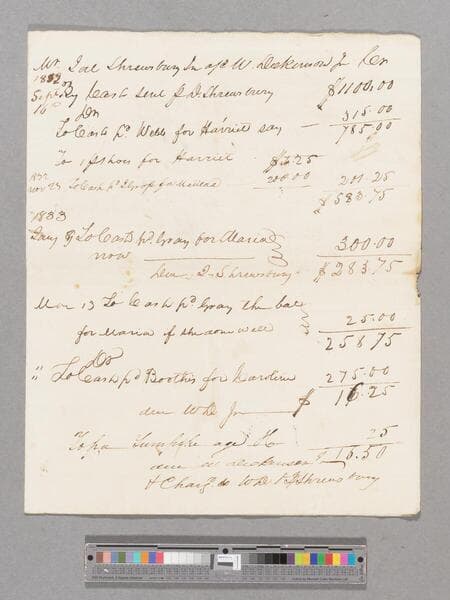 Mr. Joel Shrewsbury In a/c W. Dickinson Jr Cr
1832
Sept 10 By Cash sent p D. Shrewsbury $1100.00
Dr
To Cash pd Webb for Harriet say — 315.00
785.00
To 1 p Shoes for Harriet $1.25
1832
Nov 23 To Cash pd for Malinda 200.00 201.25
$583.75
1833
Jany 8 To Cash pd Gray for Maria
now 300.00
Due J. Shrewsbury $283.75
Mar 13 To Cash pd Gray the bal
for Maria if she done well 25.00
258.75
Do
" To Cash pd Booths for Caroline 275.00
due WD Jr $ 16.25
To pd age &c 25
due W Dickinson Jr 16.50
& Chargd to WD & J Shrewsbury